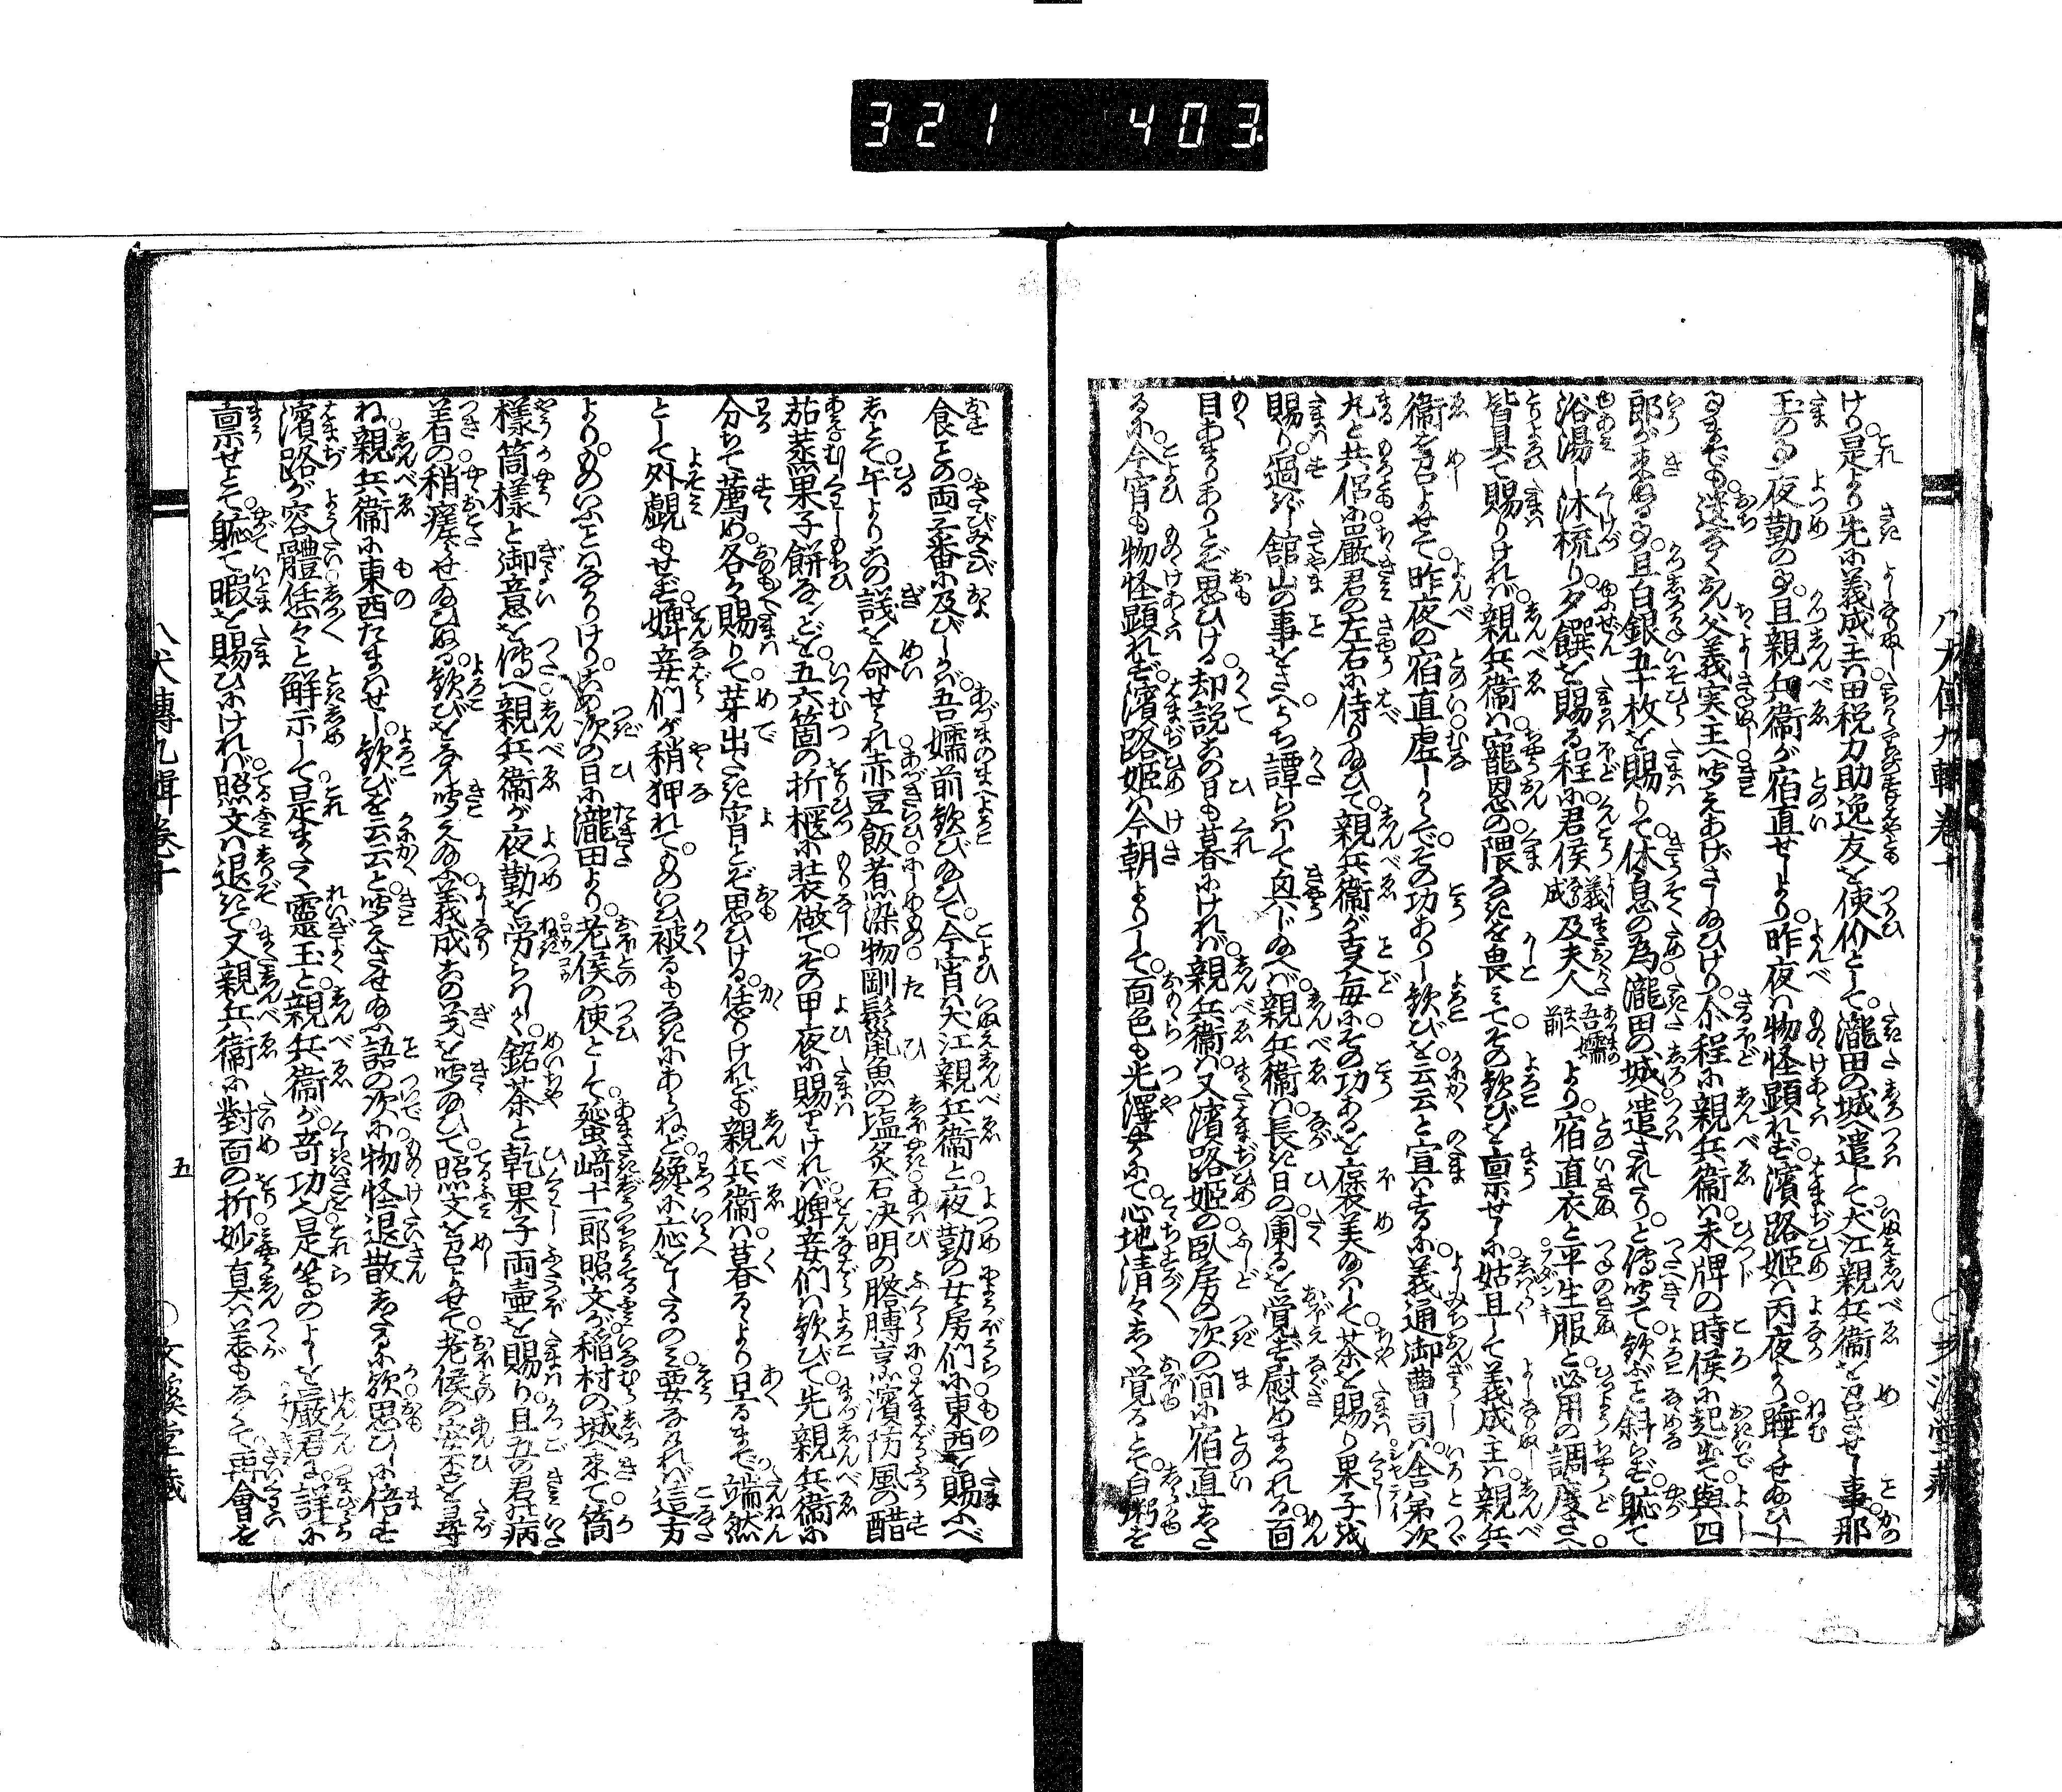 321 403
八犬傳九輯卷十
ける是より先に義成主は田税力助逸友を使价として瀧田の城へ遣して犬江親兵衞を召させし事那
玉の事夜勤の事且親兵衞が宿直せしより昨夜は物怪顕れず濱路姫は丙夜より睡らせ給ひし
事までも遺なく父義実主へ聞えあげさし給ひけり介程に親兵衞は未牌の時候に起出て與四
郎が来ぬる事且白銀五十枚を賜りて休息の為瀧田の城へ遣されたりと傳聞て歓ぶと斜らず軈て
浴湯し沐梳り夕饌を賜る程に君侯義成及夫人吾嬬前より宿直衣と平生服と必用の調度さへ
皆具て賜りければ親兵衞は寵恩の隈なきを畏みてその歓びを稟せしに姑且して義成主は親兵
衞を召よせて昨夜の宿直虚しからでその功ありし歓びを云云と宣はするに義通御曹司は舍弟次
丸と共侶に嚴君の左右に侍り給ひて親兵衞が支毎にその功あるを葆美給はして茶を賜り果子を
賜り過ぎし舘山の事をさへうち譚らはして興じ給へば親兵衞は長き日の闌るを覚ず慰めまゐれる面
目あまりありとぞ思ひける却説この日も暮にければ親兵衞は又濱路姫の臥房の次の間に宿直した
るに今宵も物怪顕れず濱路姫は今朝よりして面色も光澤やかにて心地清々しく覚るとて白粥を
食との両三番に及びしかば吾嬬前歓び給ひて今宵は犬江親兵衞と夜勤の女房們に東西を賜ふべ
しとて午よりこの議を命せられ赤豆飯煮染物剛鬆魚の塩炙石決明の膾膞烹濱防風の醋
茄蒸菓子餅などを五六箇の折櫃に装做てその甲夜に賜りければ婢妾們は歓びて先親兵衞に
分ちて薦め各々賜りて芽出たき宵とぞ思ひける恁りけれども親兵衞は暮るより旦るまで端然
として外覷もせず婢妾們が稍狎れてものいひ被るもなきにあらねど纔に応をしたるのみ要なければ這方
よりものいふとはなかりけりこの次の日に瀧田より老侯の使として蜑崎十一郎照文が稲村の城へ来て箇
様箇様と御意を傳へ親兵衞が夜勤を労らはく銘茶と乾菓子両壷を賜り且五の君の病
着の稍瘥らせ給ひぬる歓びをなん聞え給ふ義成この義を聞給ひて照文を召よせて老侯の安否を尋
ね親兵衞に東西たまはせし歓びを云云と聞えさせ給ふ語の次に物怪退散したるに歓思ひしに倍さず
濱路が容體恁々と解示して是まさに靈玉と親兵衞が竒功也是等のよしを嚴君に詳に
稟せとて軈て暇を賜ひにければ照文は退きて又親兵衞に對面の折妙真は恙もなくて再會を
八犬傳九輯卷十
五
文溪堂藏